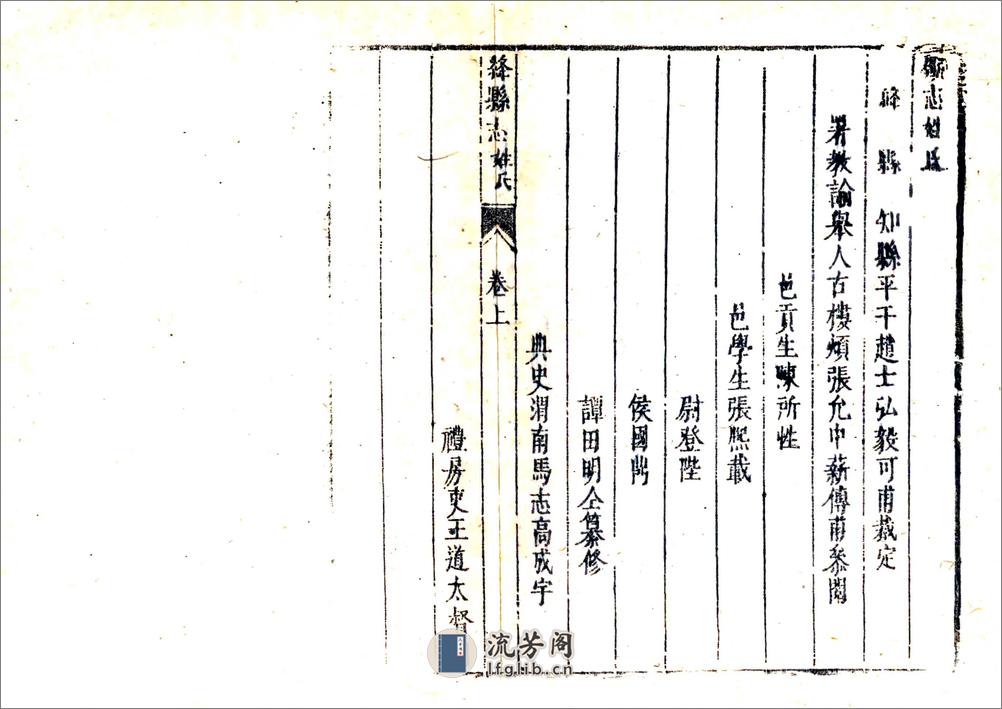 衂志姓氏
絳縣知縣平干趙士弘毅可甫裁定
署教諭舉人古樓煩張允中薪傳甫叅閱
邑貢生陳所性
邑學生張熙載
尉登陛
侯國鼎
譚田明仝纂修
典史渭南馬志高成宇
絳縣志 姓氏 卷上
禮房吏王道太督
流芳阁
lfglib.cn